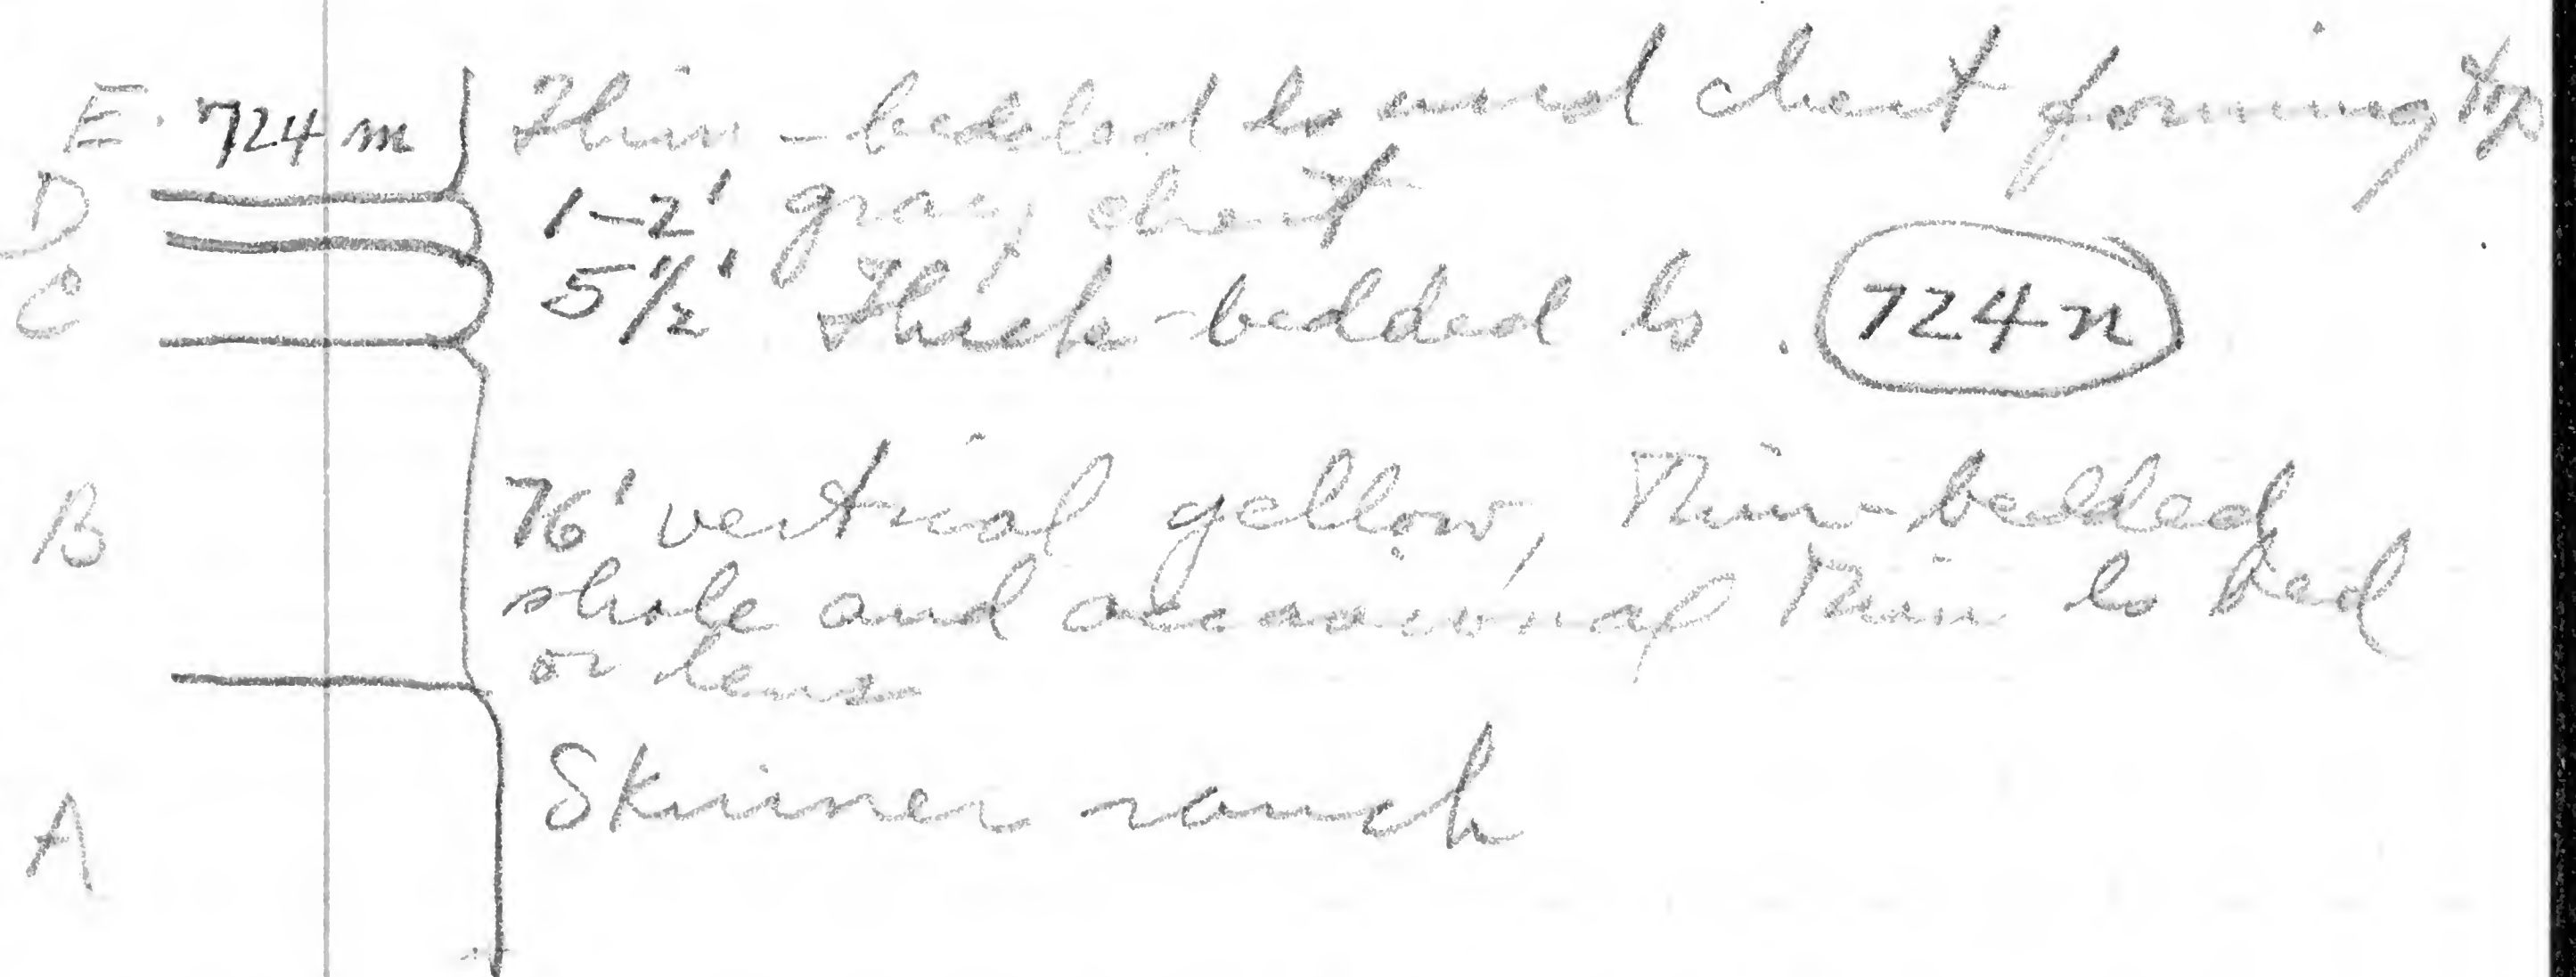 E. 724 m Thin-bedded ls and chert forming top
D 1-2' gray chert
C 5½' Thick-bedded ls. 724n
B 76' vertical yellow, Thin-bedded
shale and occasional Thin ls bed
or lens
A Skinner ranch